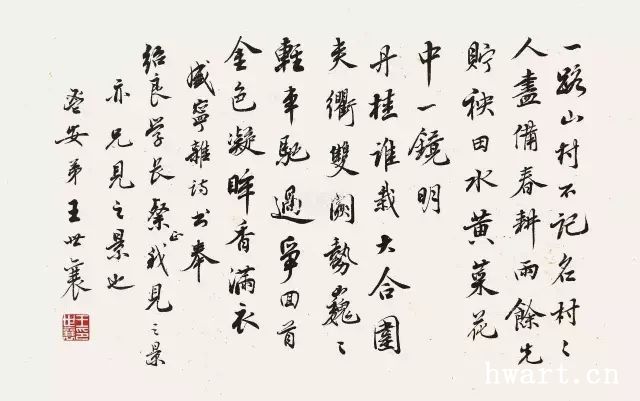 一路山村不記名村〻
人盡備春耕雨餘先
貯秧田水黃菜花
中一鏡明
丹桂誰栽大合圍
夾衢雙闕勢巍〻
輕車馳過爭回首
金色凝眸香滿衣
咸寧雜詩书奉
紹良学長粲正我見之景
亦兄見之景也
鬯安弟王世襄
hwart.cn